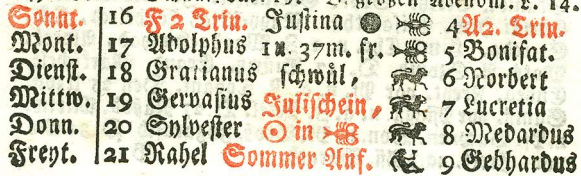 Sonnt. 16 F 2 Trin. Justina 4 A2. Trin.
Mont. 17 Adolphus 1 u. 37m. fr. 5 Bonifat.
Dienst. 18 Gratianus schwül, 6 Norbert
Mittw. 19 Gervasius Julischein, 7 Lucretia
Donn. 20 Sylvester ☉ in 8 Medardus
Freyt. 21 Rahel Sommer Anf. 9 Gebhardus